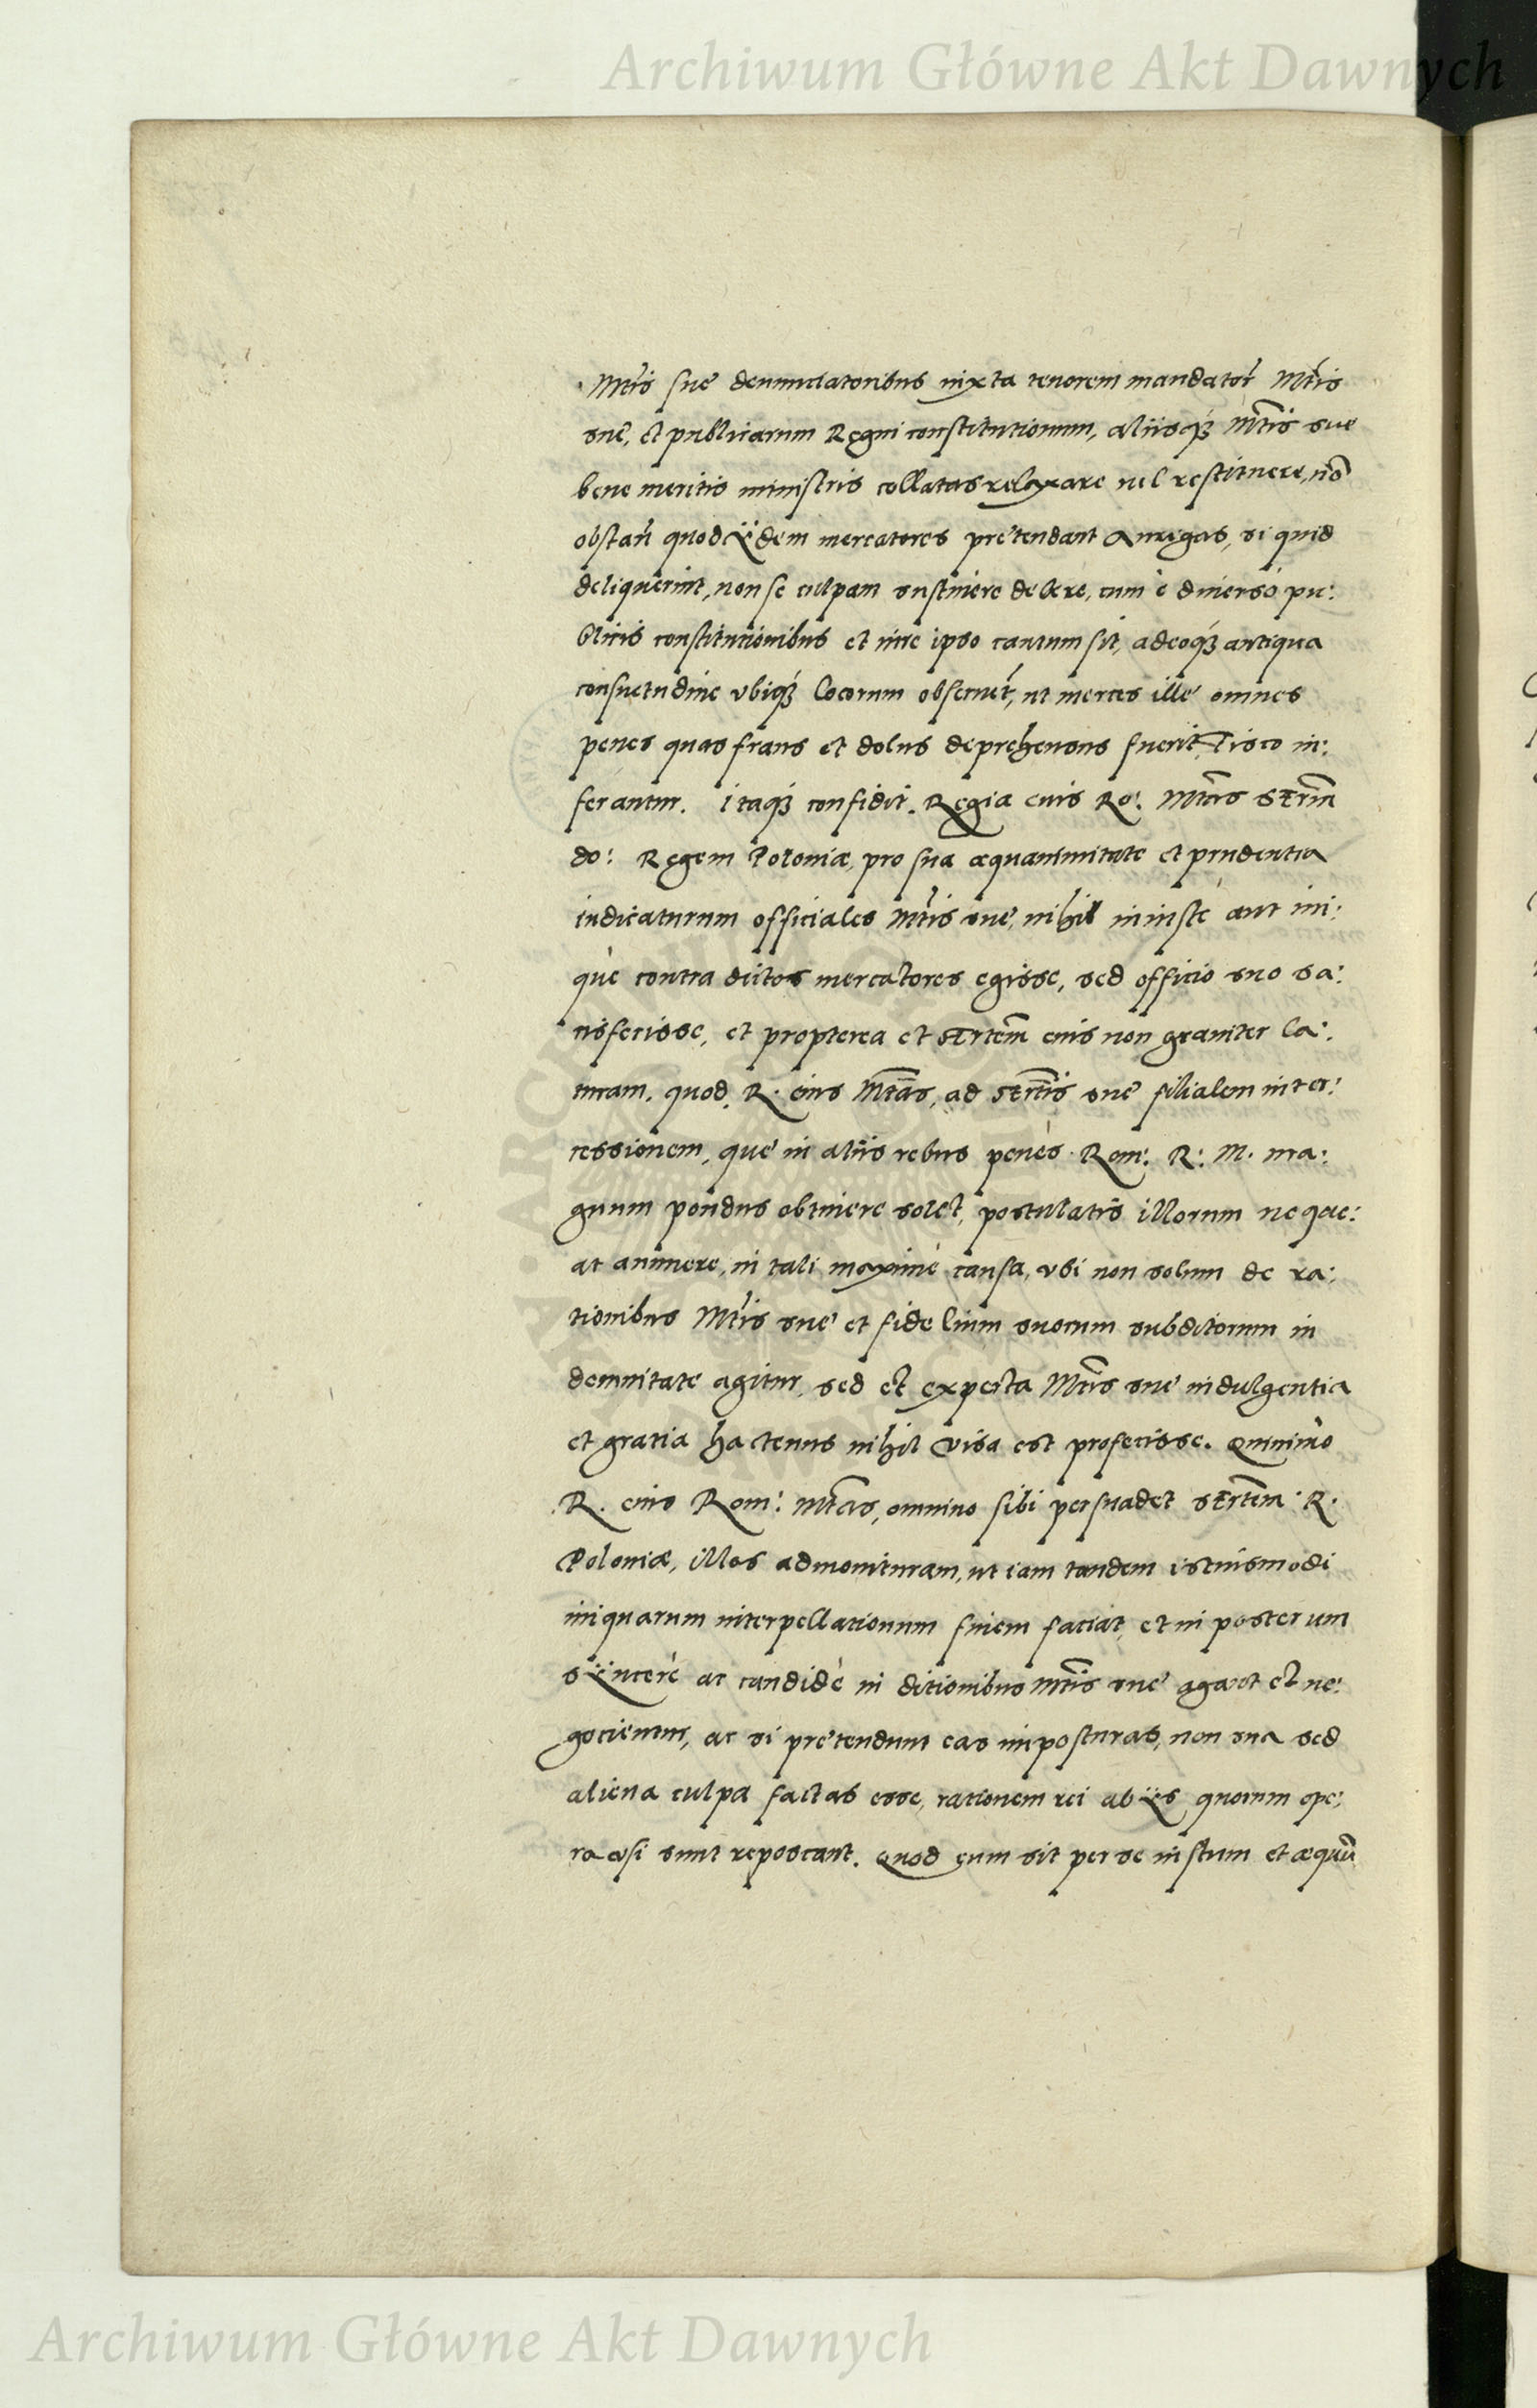 Archiwum Główne Akt Dawnych
Mtis suę denunciatoribus iuxta tenorem mandator Mtis
suę, et publicarum Regni constitutionum, aliisq́ Mtis suę
bene meritis ministris collatas relaxare uel restituere, nō
obstań quod ÿdem mercatores prętendant Aurigas, si quid
deliquerint, non se culpam sustinere debere, cum è diuerso pu:
blicis constitutionibus et iure ipso cautum sit, adeoq́ antiqua
consuetudine vbiq́ locorum obseruet, ut merces illę omnes
penes quas fraus et dolus deprehensus fuerit, Fisco in:
ferantur. Itaq́ confidit. Regia eius Ro: Mtas Sermm
do: Regem Poloniæ, pro sua æquanimitate et prudentia
iudicaturum officiales Mtis suę, nihil iniuste aut ini:
què contra dictos mercatores egisse, sed officio suo sa:
tisfecisse, et propterea et Sertem eius non grauiter la:
turam, quod R. eius Mtas, ad Sertis suę filialem inter:
cessionem, quę in aliis rebus penès Rom: R: M. ma:
gnum pondus obtinere solet, postulatis illorum neque:
at annuere, in tali maximè causa, vbi non solum de ra:
tionibus Mtis suę et fidelium suorum subditorum in
demnitate agitur, sed et experta Mtis suę indulgentia
et gratia hactenus nihil visa est profecisse. Quinimò
R. eius Rom: Mtas, omnino sibi persuadet Sertem R.
Poloniæ, illos admonituram, ut iam tandem istiusmodi
iniquarum interpellationum finem faciat, et in posterum
sÿncerè ac candidè in ditionibus Mtis suę agant et ne:
gocientur, ac si prętendunt eas imposturas, non sua sed
aliena culpa factas esse, rationem rei ab ÿs quorum ope:
ra vsi sunt reposcant. Quod cum sit per se iustum et æquū
Archiwum Główne Akt Dawnych